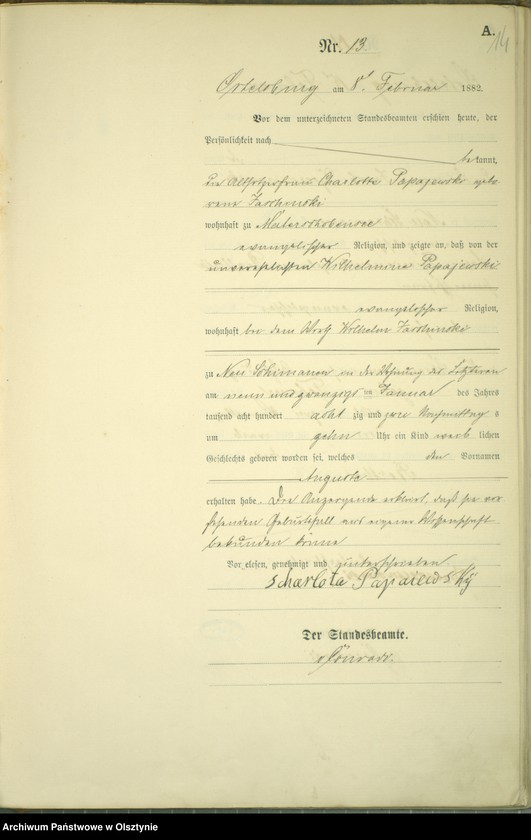 A.
14
Nr. 13.
Ortelsburg am 8ᵗ Februar 1882.
Vor dem unterzeichneten Standesbeamten erschien heute, der
Persönlichkeit nach
bekannt,
die Charlotte Papajewski gebo
rene Jaschinski
wohnhaft zu Materschobensee
evangelischer Religion, und zeigte an, daß von der
unverehelichten Wilhelmine Papajewski
evangelischer Religion,
wohnhaft bei dem Wirth Wilhelm Jaschinski
zu Neu Schimanen in der Wohnung des Letzteren
am neun und zwanzigs ten Januar des Jahres
tausend acht hundert acht zig und zwei Nachmittags
um zehn Uhr ein Kind weib lichen
Geschlechts geboren worden sei, welches den Vornamen
Auguste
erhalten habe. Die Anzeigende erklärt, daß sie vor
stehenden Geburtsfall aus eigener Wissenschaft
bekunden könne
Vorgelesen, genehmigt und unterschrieben
Scharlota Papaiewsky
Der Standesbeamte.
Conrad.
Archiwum Państwowe w Olsztynie